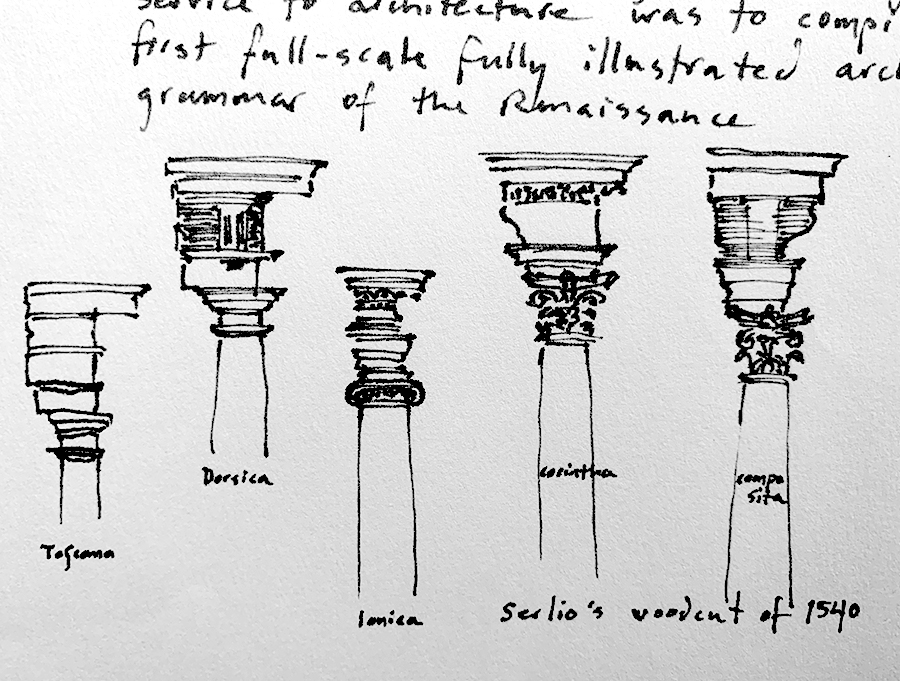 service to architecture was to compi
first full-scale fully illustrated arc
grammar of the Renaissance
Dorsica
corinthia
compo
sita
Toscana
Ionica
Serlio's woodcut of 1540